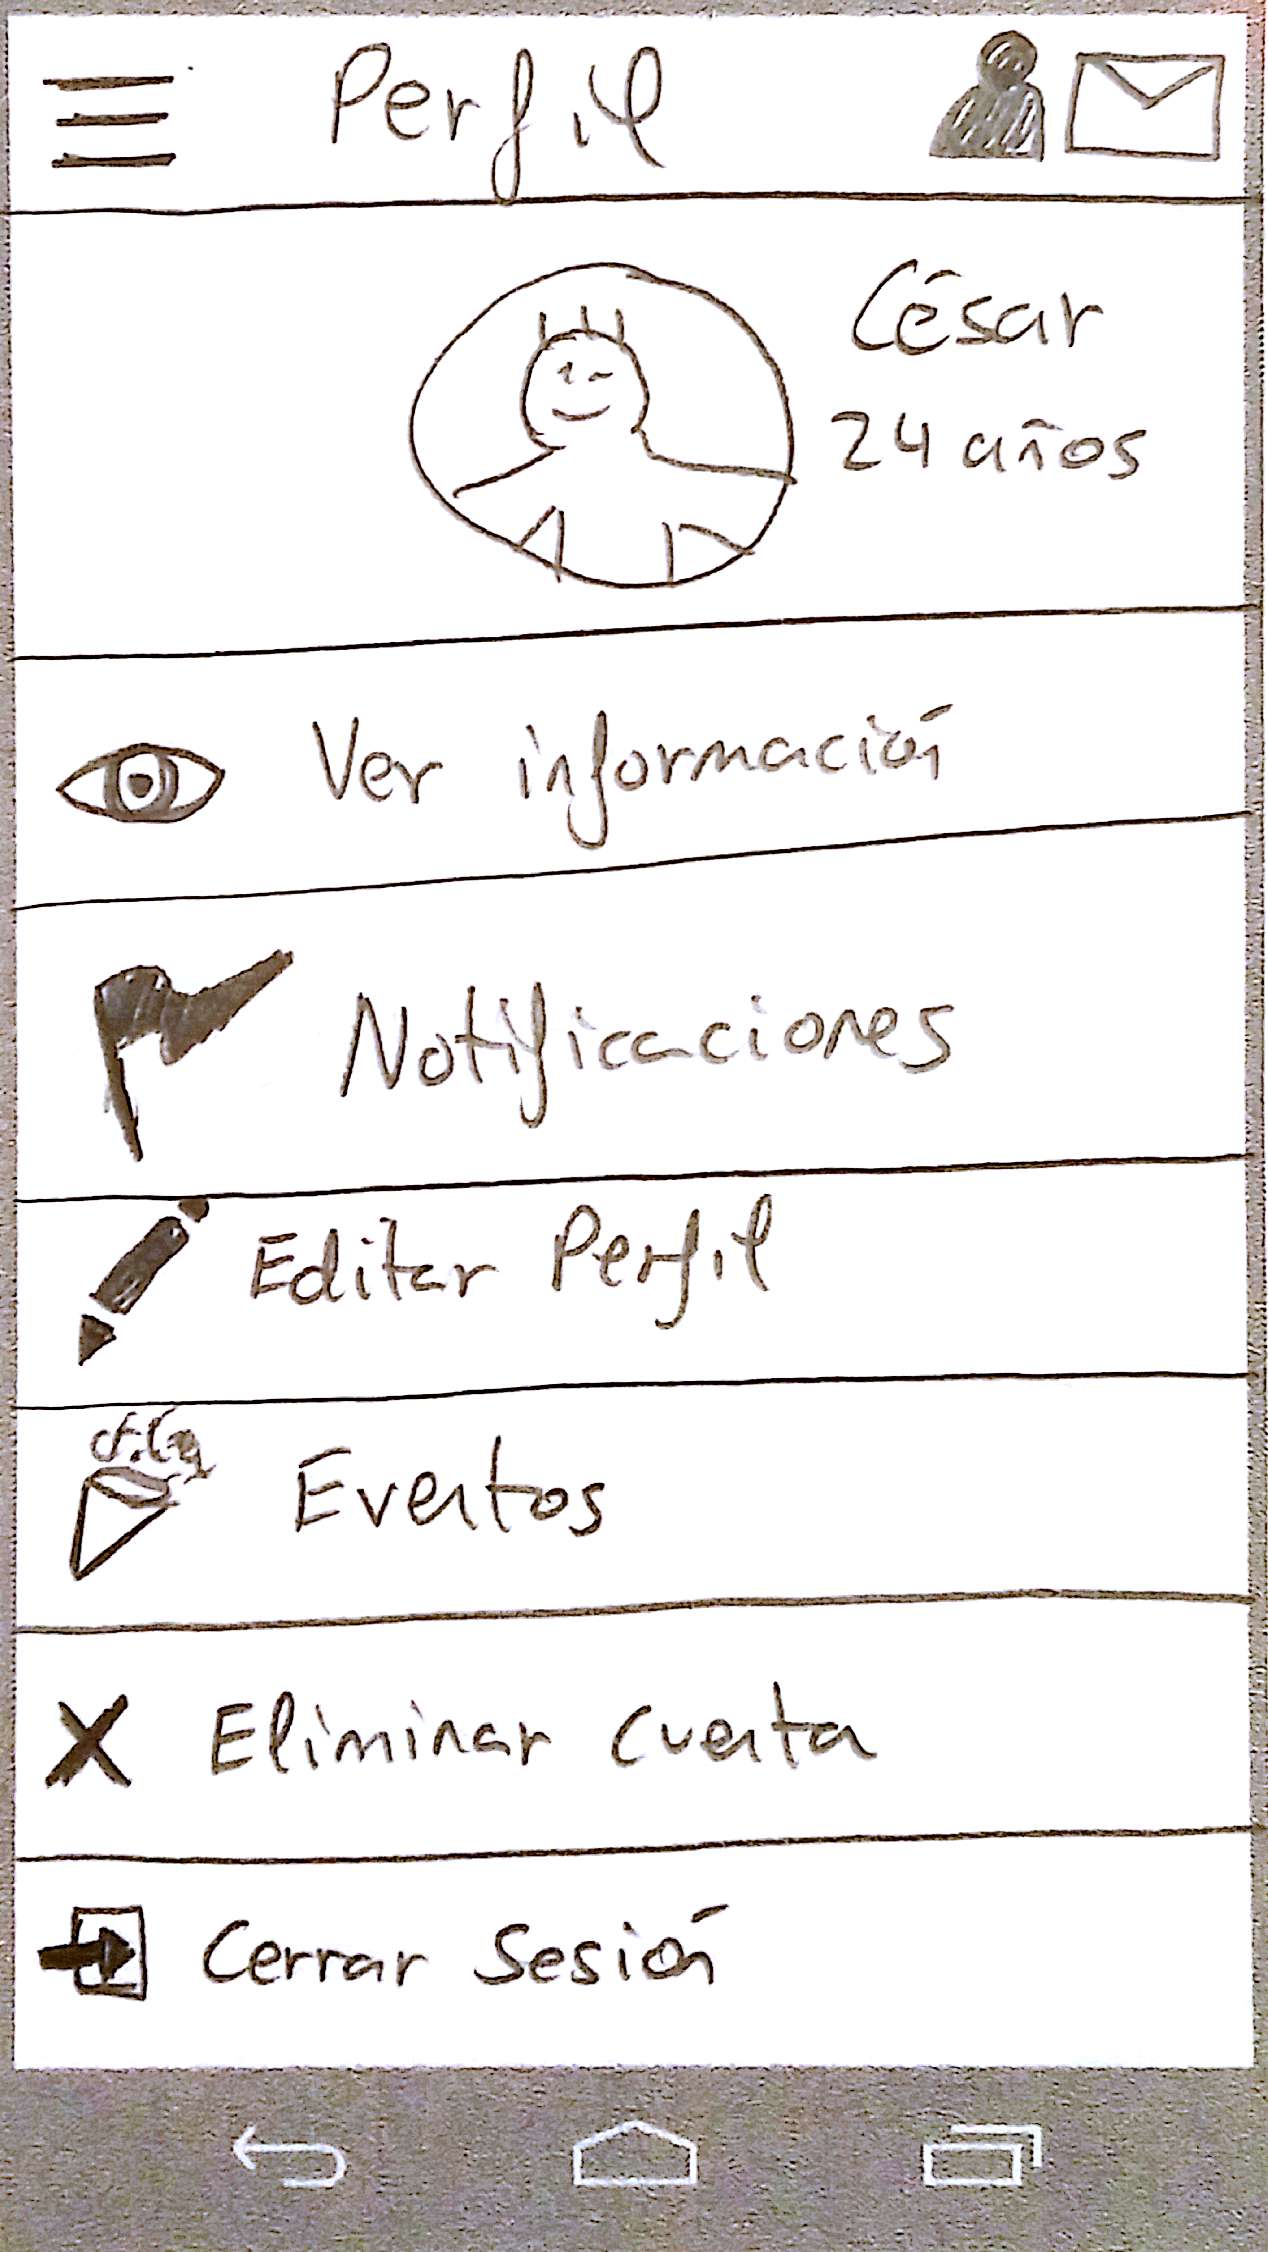 Perfil
César
24 años
Ver información
Notificaciones
Editar Perfil
Eventos
Eliminar cuenta
Cerrar Sesión